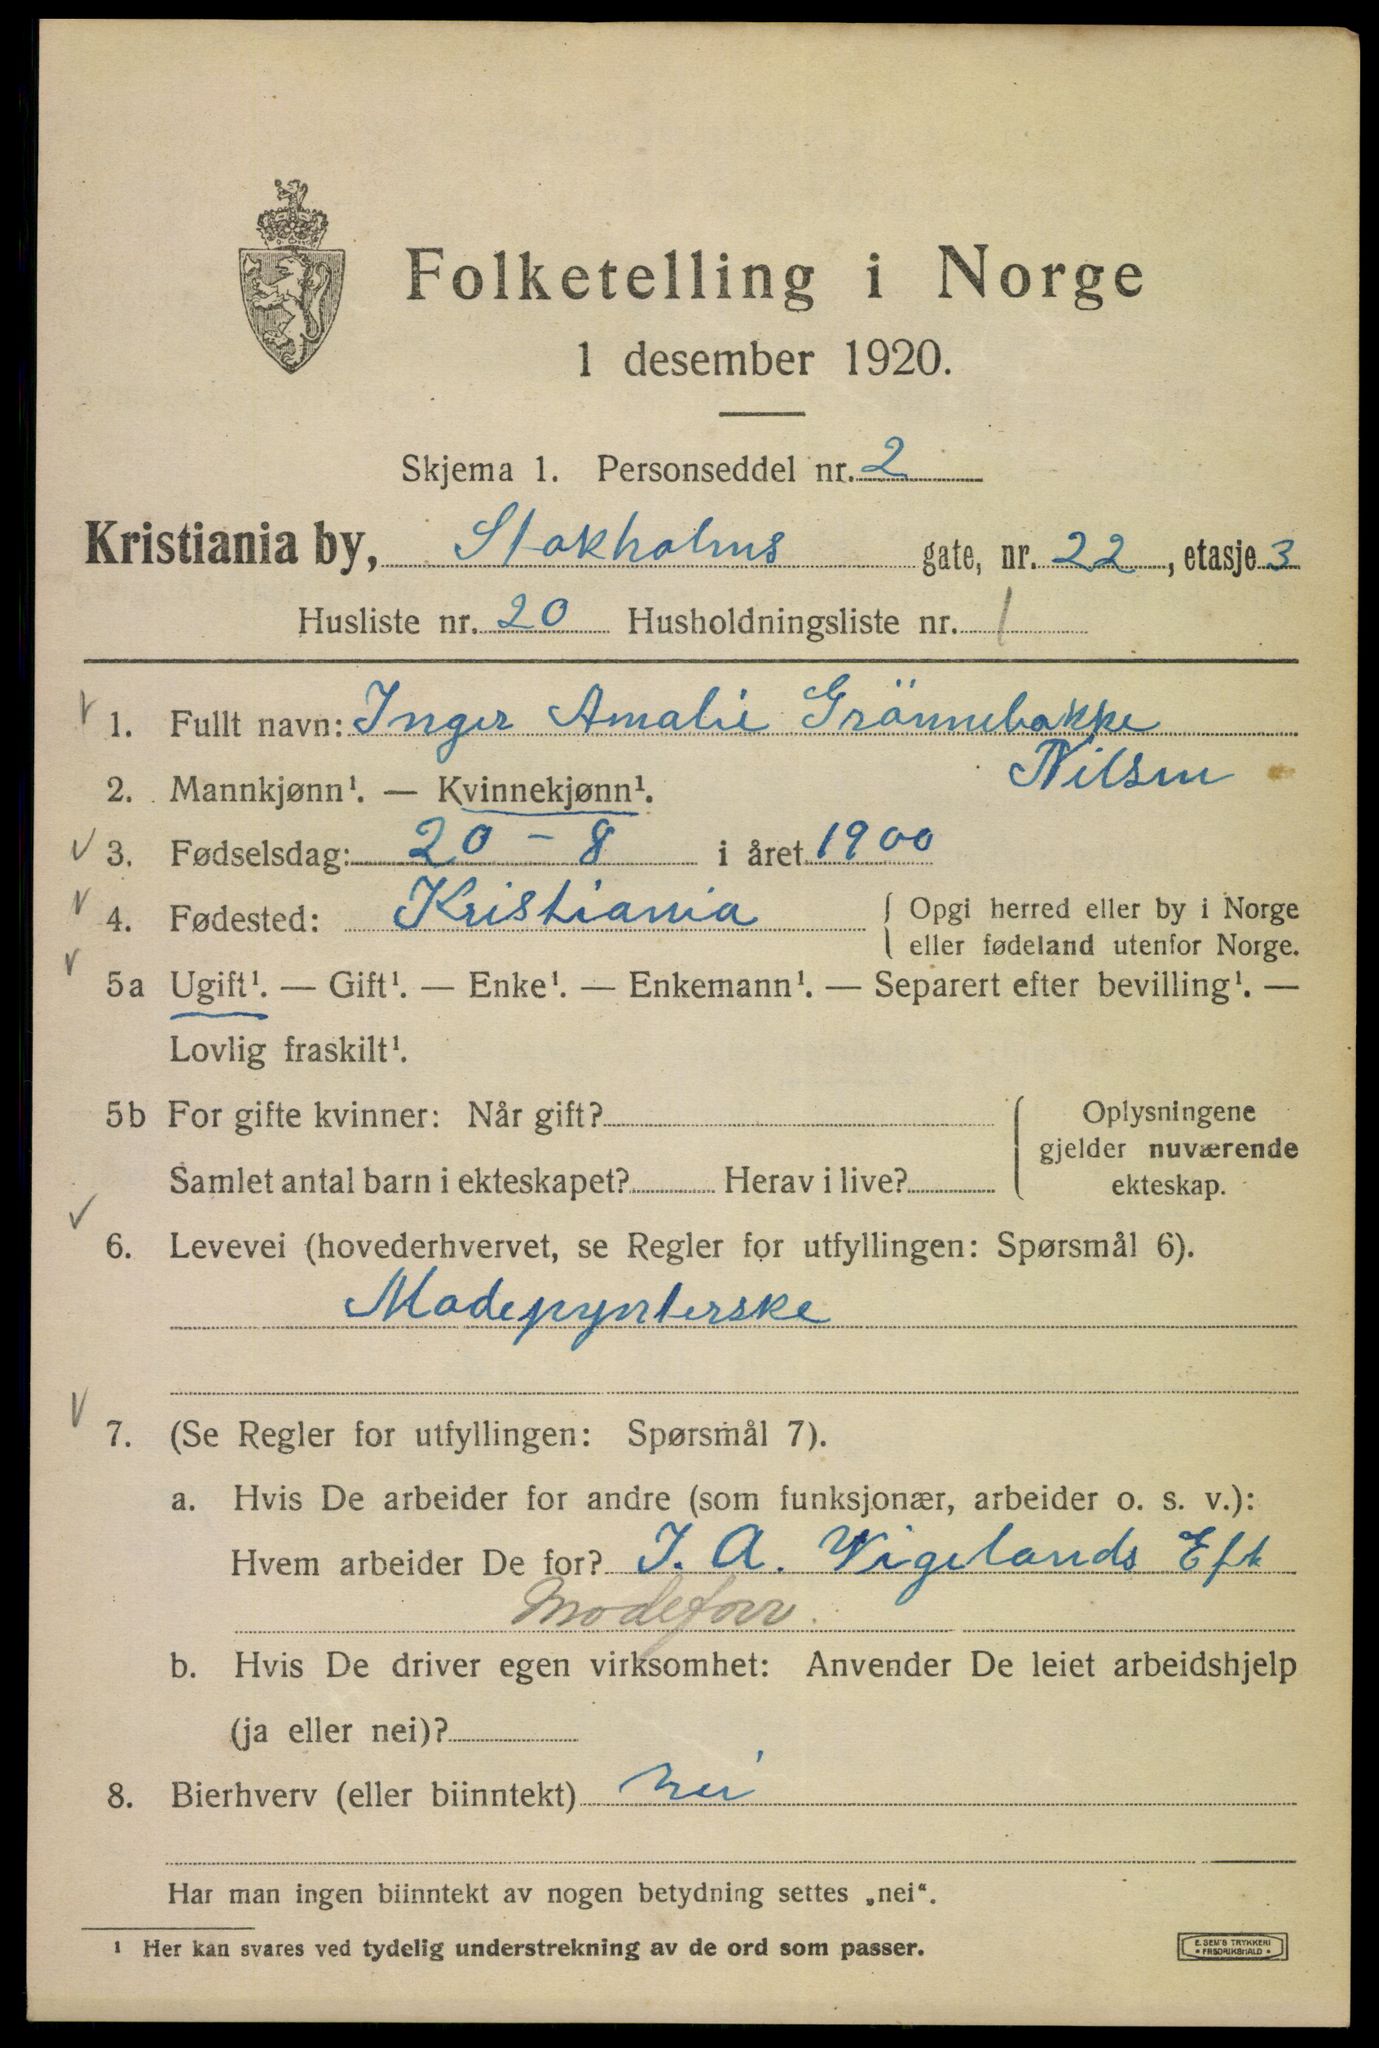 Folketelling i Norge
1 desember 1920.
Skjema 1. Personseddel nr. 2
Kristiania by, Stokholms gate, nr. 22, etasje 3
Husliste nr. 20 Husholdningsliste nr. 1
1. Fullt navn: Inger Amalie Grönnebakke
Nilsen
2. Mannkjønn¹. — Kvinnekjønn¹.
3. Fødselsdag: 20 - 8 i året 1900
4. Fødested: Kristiania { Opgi herred eller by i Norge
eller fødeland utenfor Norge.
5a Ugift¹. — Gift¹. — Enke¹. — Enkemann¹. — Separert efter bevilling¹. —
Lovlig fraskilt¹.
5b For gifte kvinner: Når gift? { Oplysningene
gjelder nuværende
Samlet antal barn i ekteskapet? Herav i live? ekteskap.
6. Levevei (hovederhvervet, se Regler for utfyllingen: Spørsmål 6).
Modepynterske
7. (Se Regler for utfyllingen: Spørsmål 7).
a. Hvis De arbeider for andre (som funksjonær, arbeider o. s. v.):
Hvem arbeider De for? J. A. Wigelands Eft
Modeforr.
b. Hvis De driver egen virksomhet: Anvender De leiet arbeidshjelp
(ja eller nei)?
8. Bierhverv (eller biinntekt) nei
Har man ingen biinntekt av nogen betydning settes „nei“.
¹ Her kan svares ved tydelig understrekning av de ord som passer.
E. SEM'S TRYKKERI
• FREDRIKSHALD •